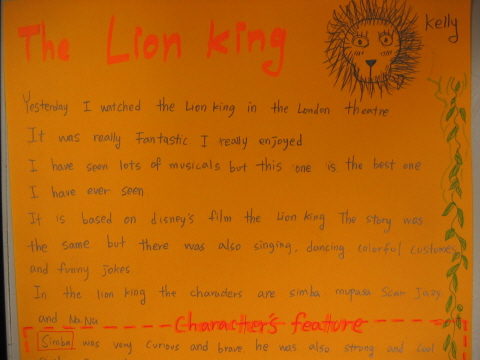 The Lion king
kelly
Yesterday I watched the Lion king in the London theatre
It was really Fantastic I really enjoyed
I have seen lots of musicals but this one is the best one
I have ever seen
It is based on disney's film the Lion king The story was
the same but there was also singing, dancing colorful customes
and funny jokes.
In the lion king the characters are simba mupasa Scar Jazy
and Na Na
Character's featture
Simba was very curious and brave he was also strong and cool